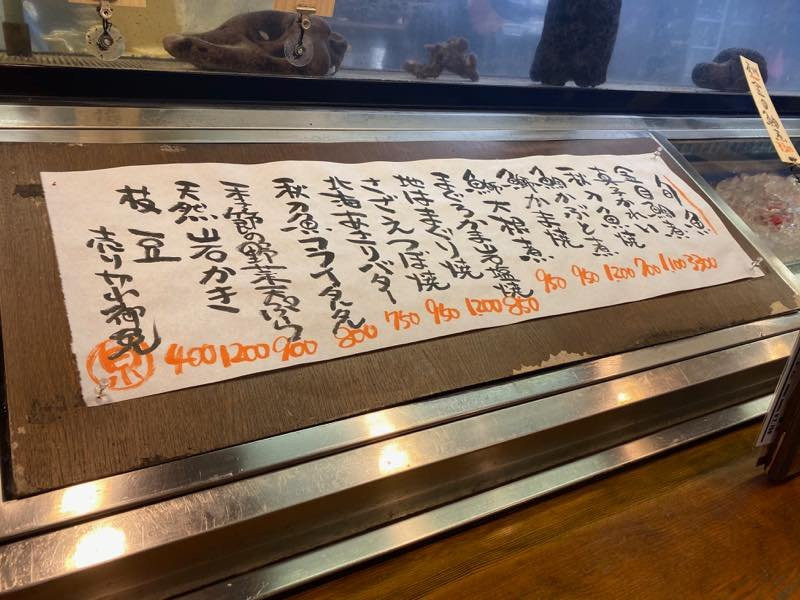 旬魚
金目鯛煮
真子かれい 1100
秋刀魚焼 700
鯛かぶと煮 1200
鰤かま焼 950
鰤大根煮 950
まぐろかま岩塩焼 850
地はまぐり焼 1200
さざえつぼ焼 950
北海あさりバター 750
秋刀魚 800
季節の野菜天ぷら 900
天然岩かき 1200
枝豆 400
売り切れ御免